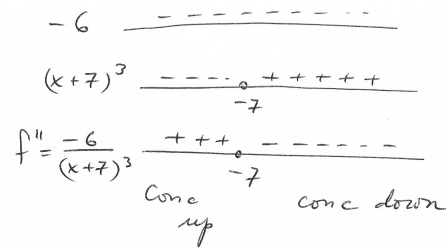 -6 - - - - - - - - -
(x+7)³ - - - - + + + + +
-7
f" = -6/(x+7)³ + + + - - - - - -
-7
Conc conc down
up